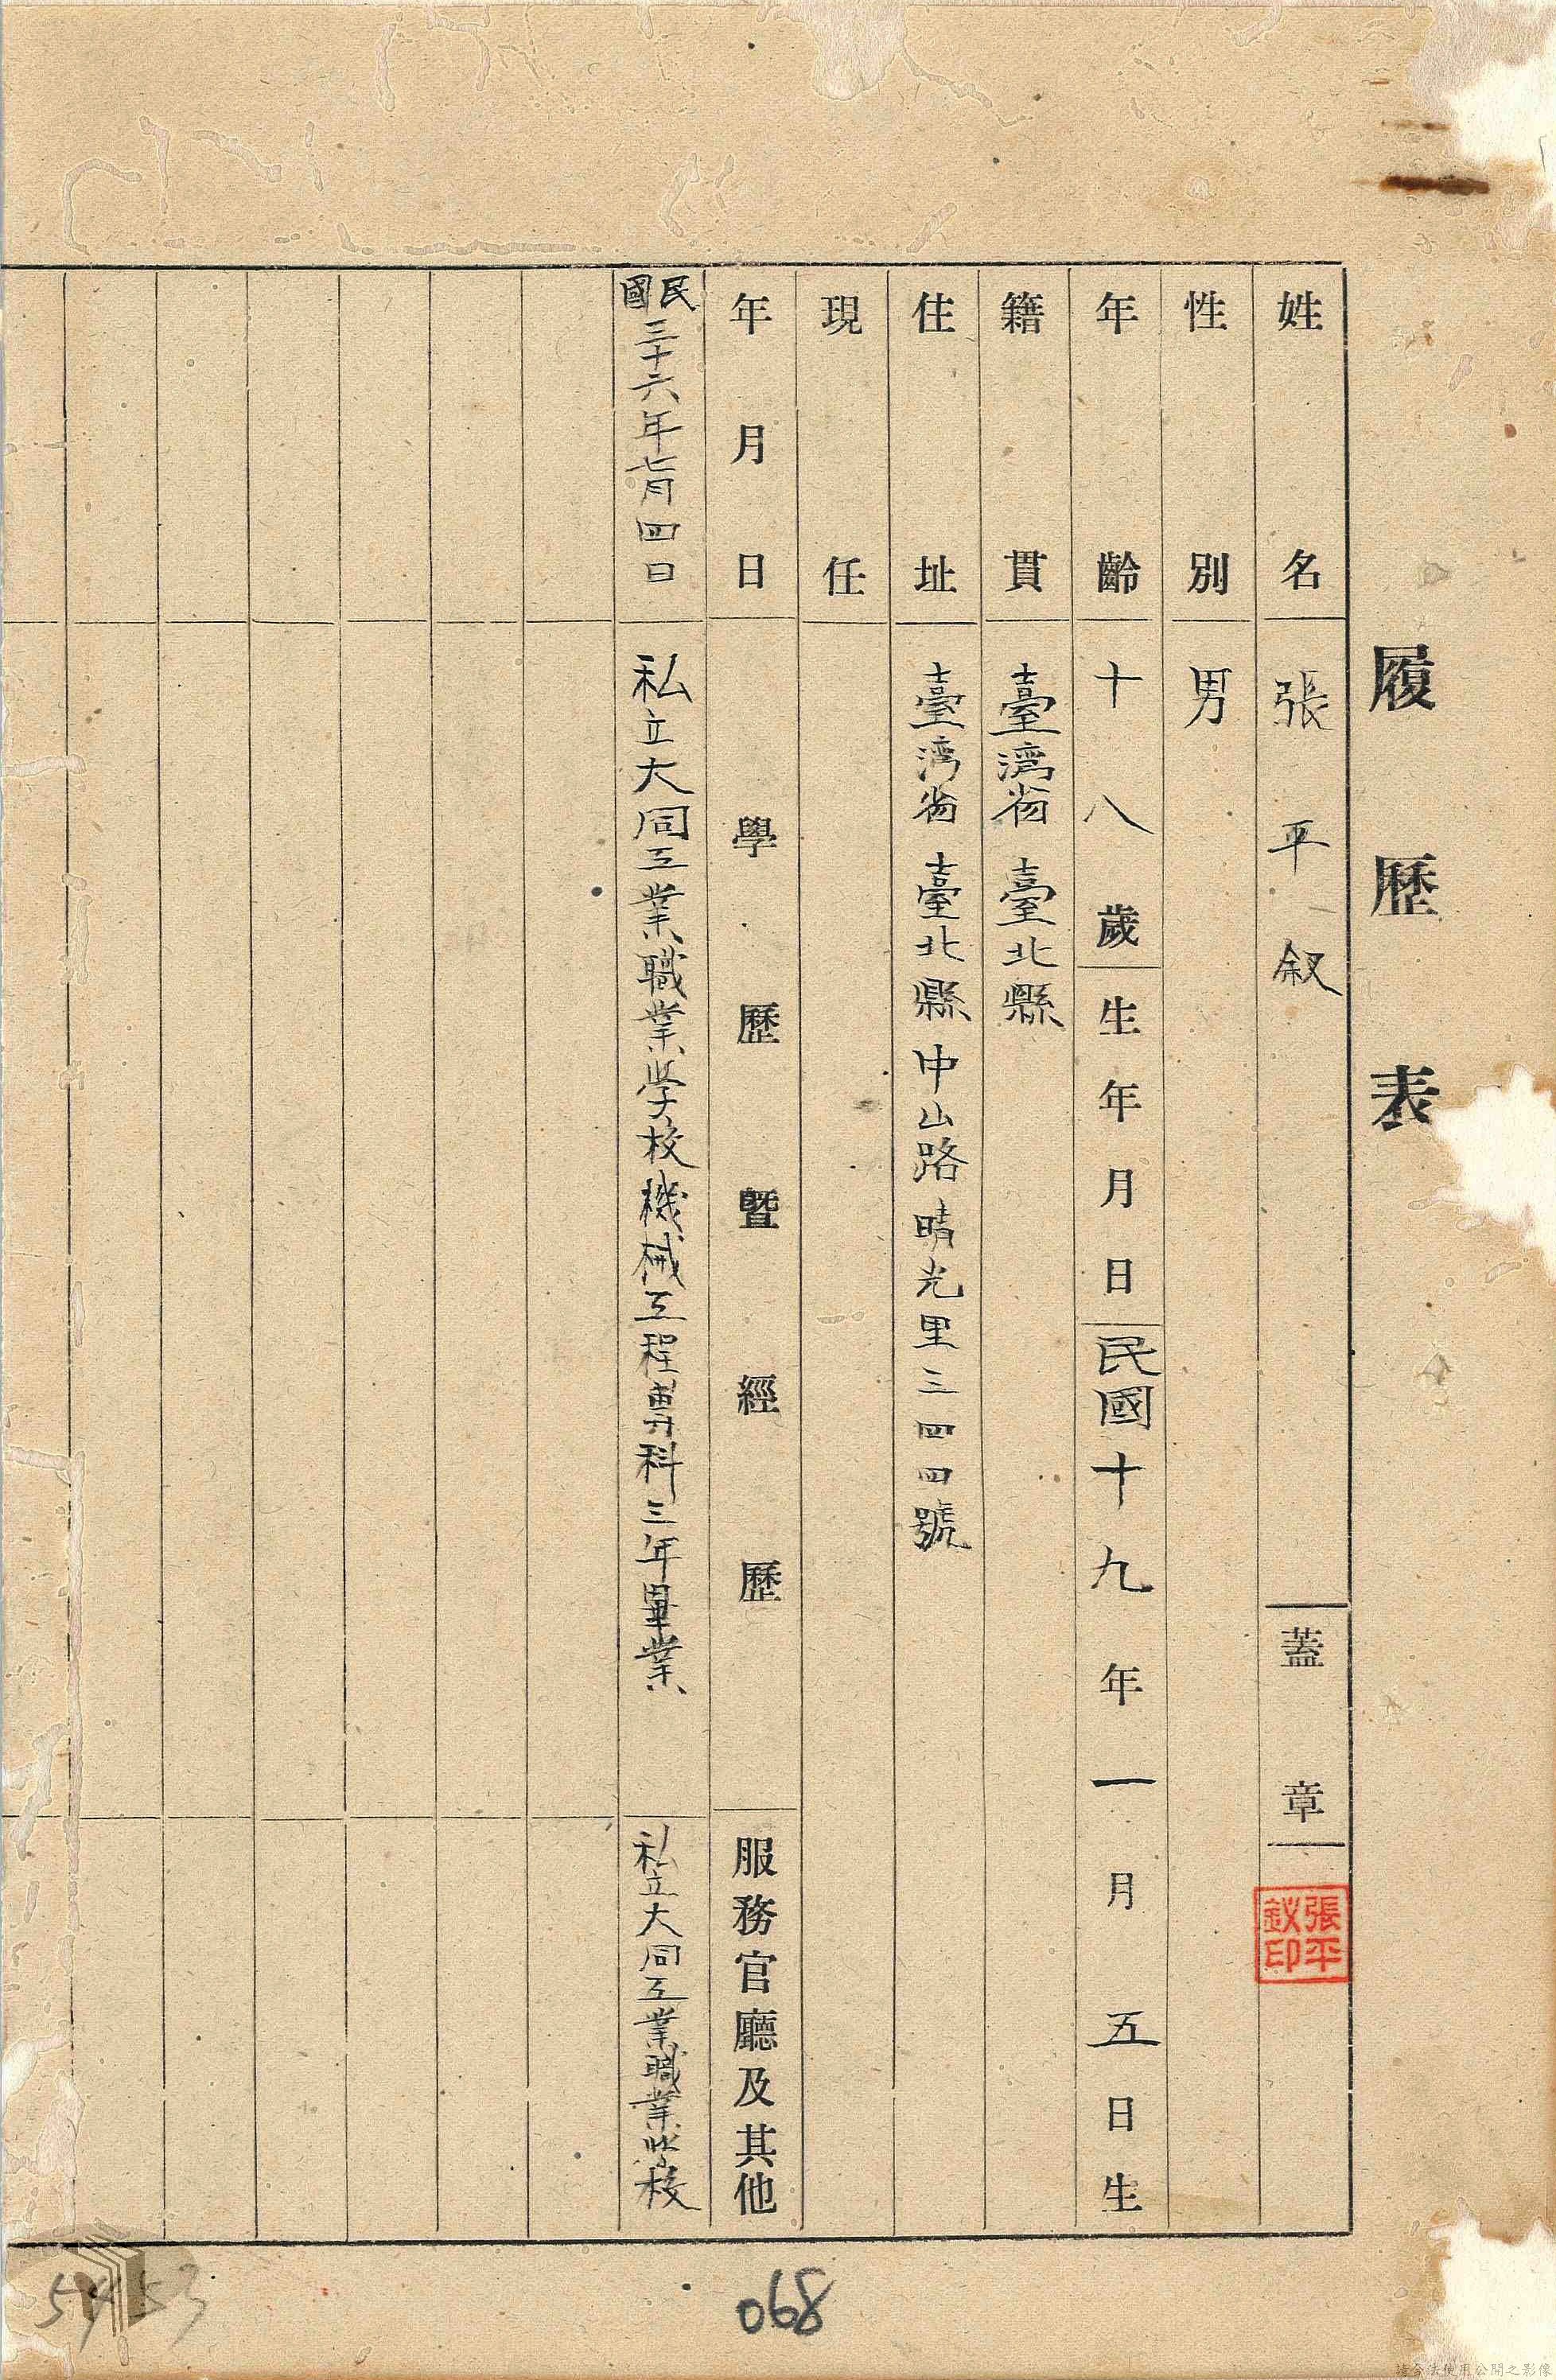 履歷表
姓名 張平敘 蓋章
張平釵印
性別 男
年齡 十八歲 生年月日 民國十九年一月五日生
籍貫 臺灣省臺北縣
住址 臺湾省臺北縣中山路晴光里三四四號
現任
年月日 學歷暨經歷 服務官廳及其他
民國三十六年七月四日 私立大同工業職業学校機械工程專科三年畢業 私立大同工業職業学校
068
5453
請合法使用公開之影像